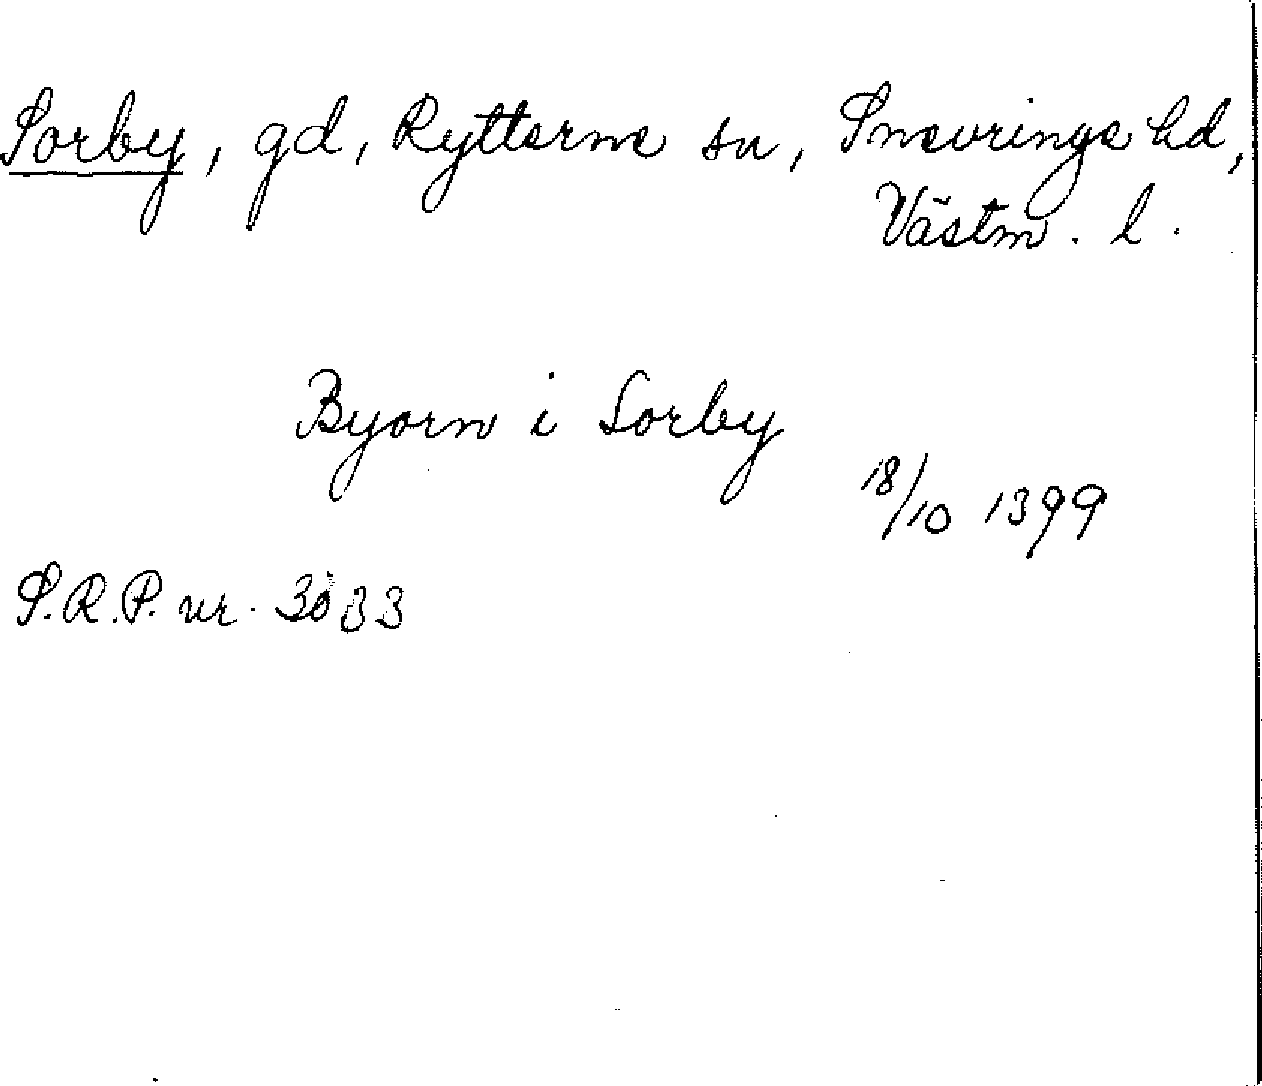 Sorby, gd, Rytterne sn, Snevringe hd,
Västm. l.
Byorn i Sorby
18/10 1399
S.R.P. nr. 3033